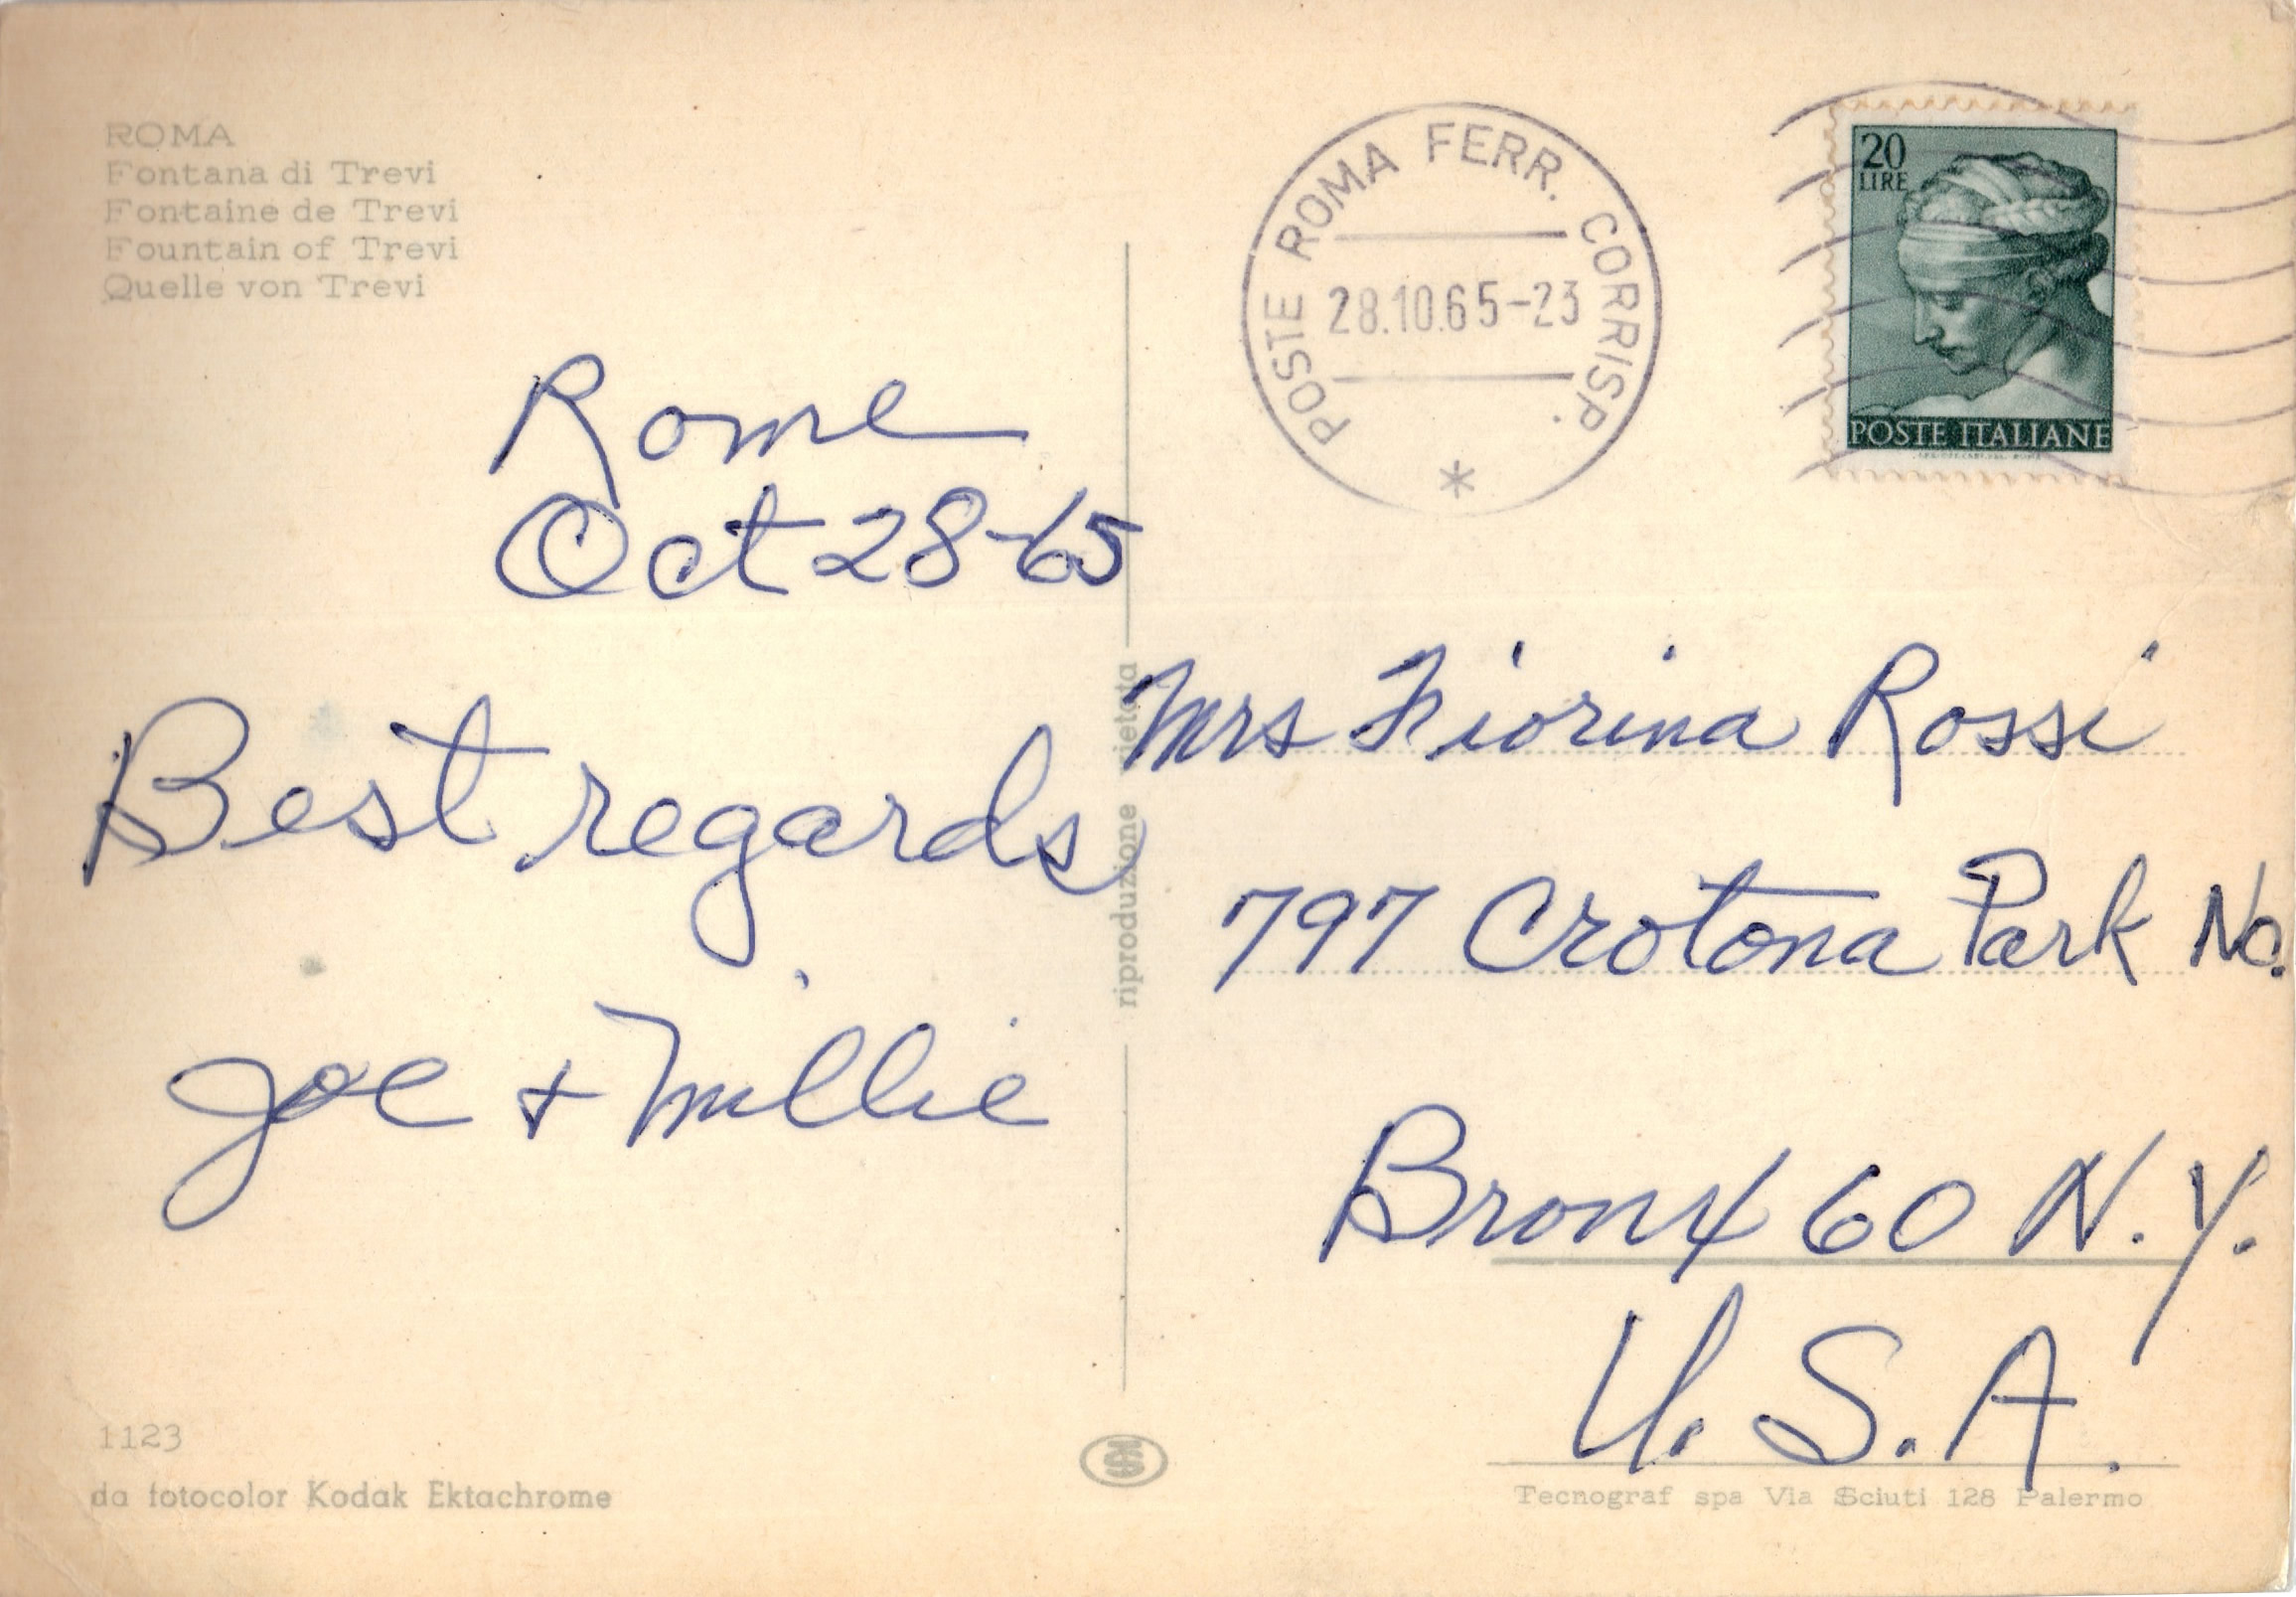 ROMA
Fontana di Trevi
Fontaine de Trevi
Fountain of Trevi
Quelle von Trevi
POSTE ROMA FERR. CORRISP.
28.10.65-23
*
20
LIRE
POSTE ITALIANE
Rome
Oct 28-65
Best regards
Joe + Millie
riproduzione vietata
Mrs Fiorina Rossi
797 Crotona Park No.
Bronx 60 N.Y.
U.S.A.
1123
da fotocolor Kodak Ektachrome
Tecnograf spa Via Sciuti 128 Palermo